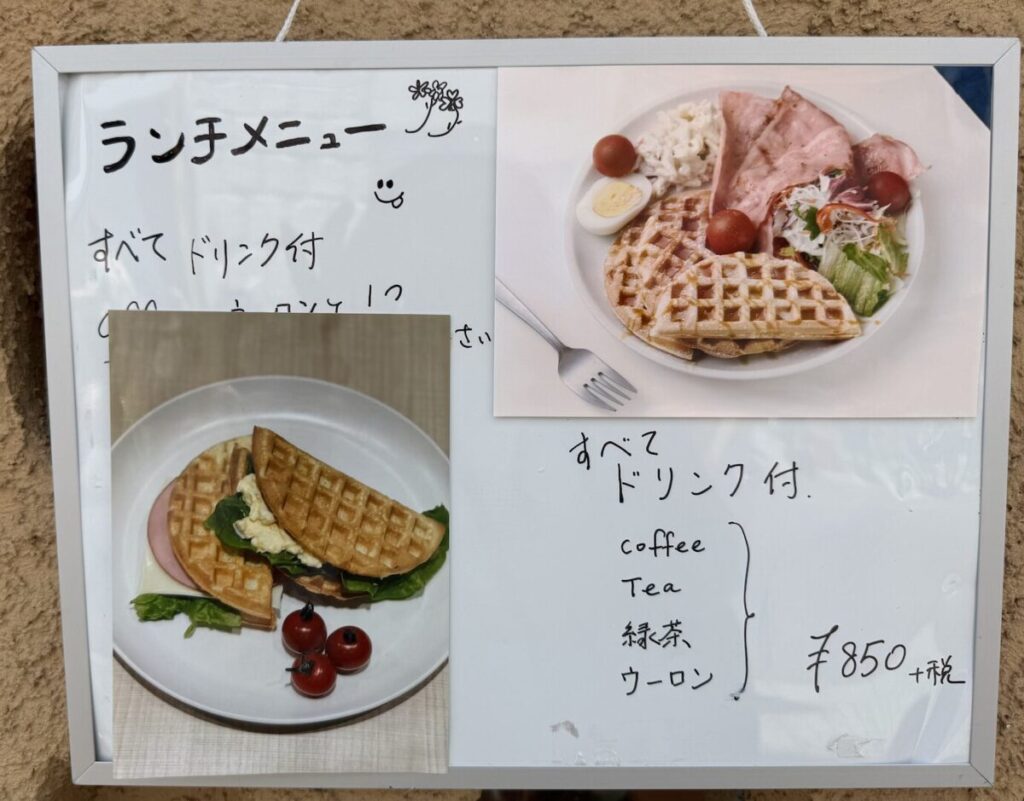 ランチメニュー
すべて ドリンク付
さい
すべて
ドリンク付.
coffee
Tea
緑茶
ウーロン
¥850+税